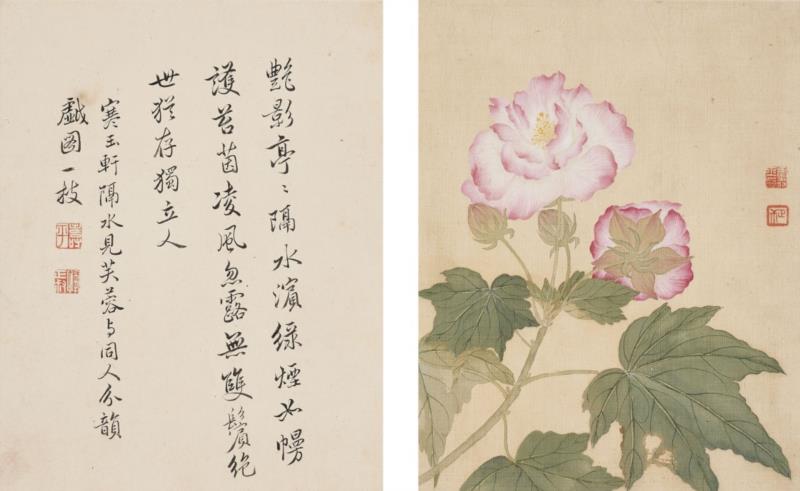 艷影亭〻隔水濱綠煙如幔
護苔茵凌風忽露無雙鬢絕
世猶存獨立人
寒玉軒隔水見芙蓉与同人分韻
戲圖一枝